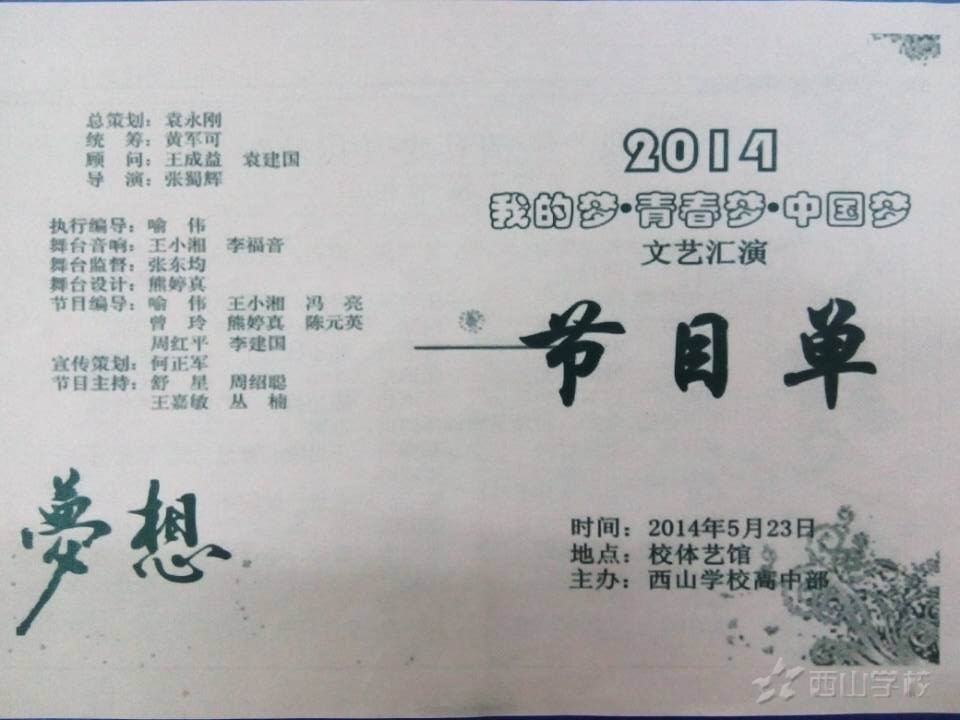 总策划：袁永刚
统　筹：黄军可
顾　问：王成益　袁建国
导　演：张蜀辉
执行编导：喻　伟
舞台音响：王小湘　李福音
舞台监督：张东均
舞台设计：熊婷真
节目编导：喻　伟　王小湘　冯　亮
曾　玲　熊婷真　陈元英
周红平　李建国
宣传策划：何正军
节目主持：舒　星　周绍聪
王嘉敏　丛　楠
夢想
2014
我的梦·青春梦·中国梦
文艺汇演
节目单
时间：2014年5月23日
地点：校体艺馆
主办：西山学校高中部
西山学校